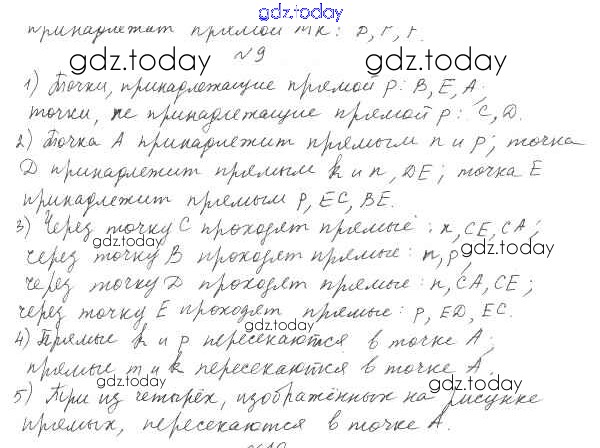 gdz.today
принадлежат прямой MK: D, F, F.
№9
gdz.today gdz.today
1) Точки, принадлежащие прямой p: B, E, A;
точки, не принадлежащие прямой p: C, D.
2) Точка A принадлежит прямым n и p; точка
D принадлежит прямым k и n, DE; точка E
принадлежит прямым p, EC, BE.
3) Через точку C проходят прямые: n, CE, CA;
gdz.today
через точку B проходят прямые: n, p;
gdz.today
через точку D проходят прямые: n, CA, CE;
через точку E проходят прямые: p, ED, EC.
gdz.today
4) Прямые k и p пересекаются в точке A;
прямые m и k пересекаются в точке A.
gdz.today gdz.today
5) Три из четырёх, изображённых на рисунке
прямых, пересекаются в точке A.